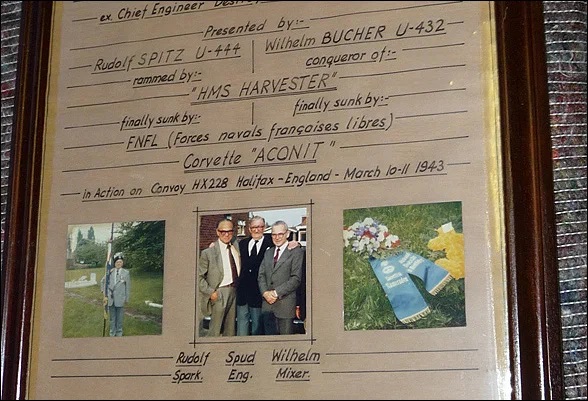 ex. Chief Engineer
Presented by:-
Rudolf SPITZ U-444 Wilhelm BUCHER U-432
rammed by:- conqueror of:-
"HMS HARVESTER"
finally sunk by:- finally sunk by:-
FNFL (Forces navals françaises libres)
Corvette "ACONIT"
in Action on Convoy HX228 Halifax - England - March 10-11 1943
Rudolf Spud Wilhelm
Spark. Eng. Mixer.